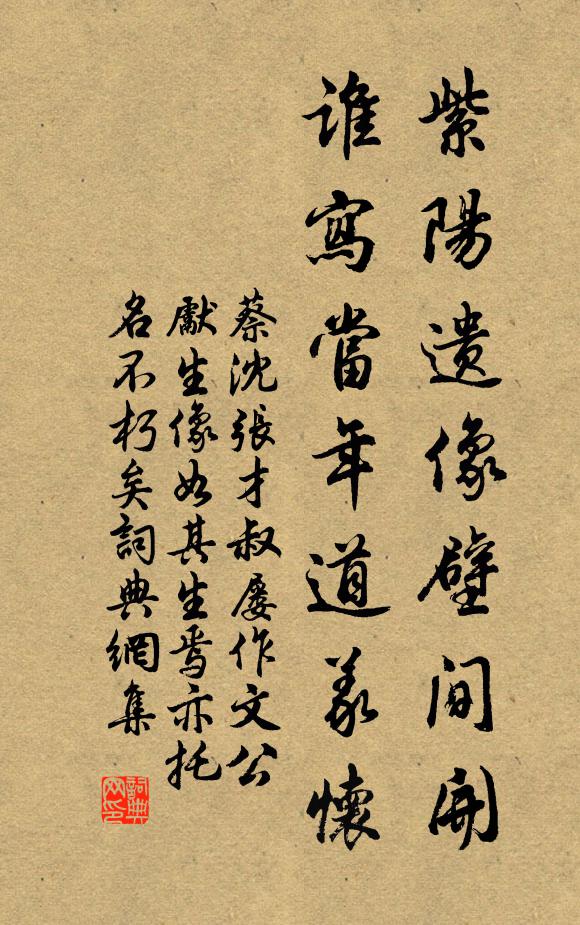 紫陽遺像壁間開
誰寫當年道義懷
蔡沈張才叔屢作文公
獻生像如其生焉亦托
名不朽矣詞典網集
詞典网印